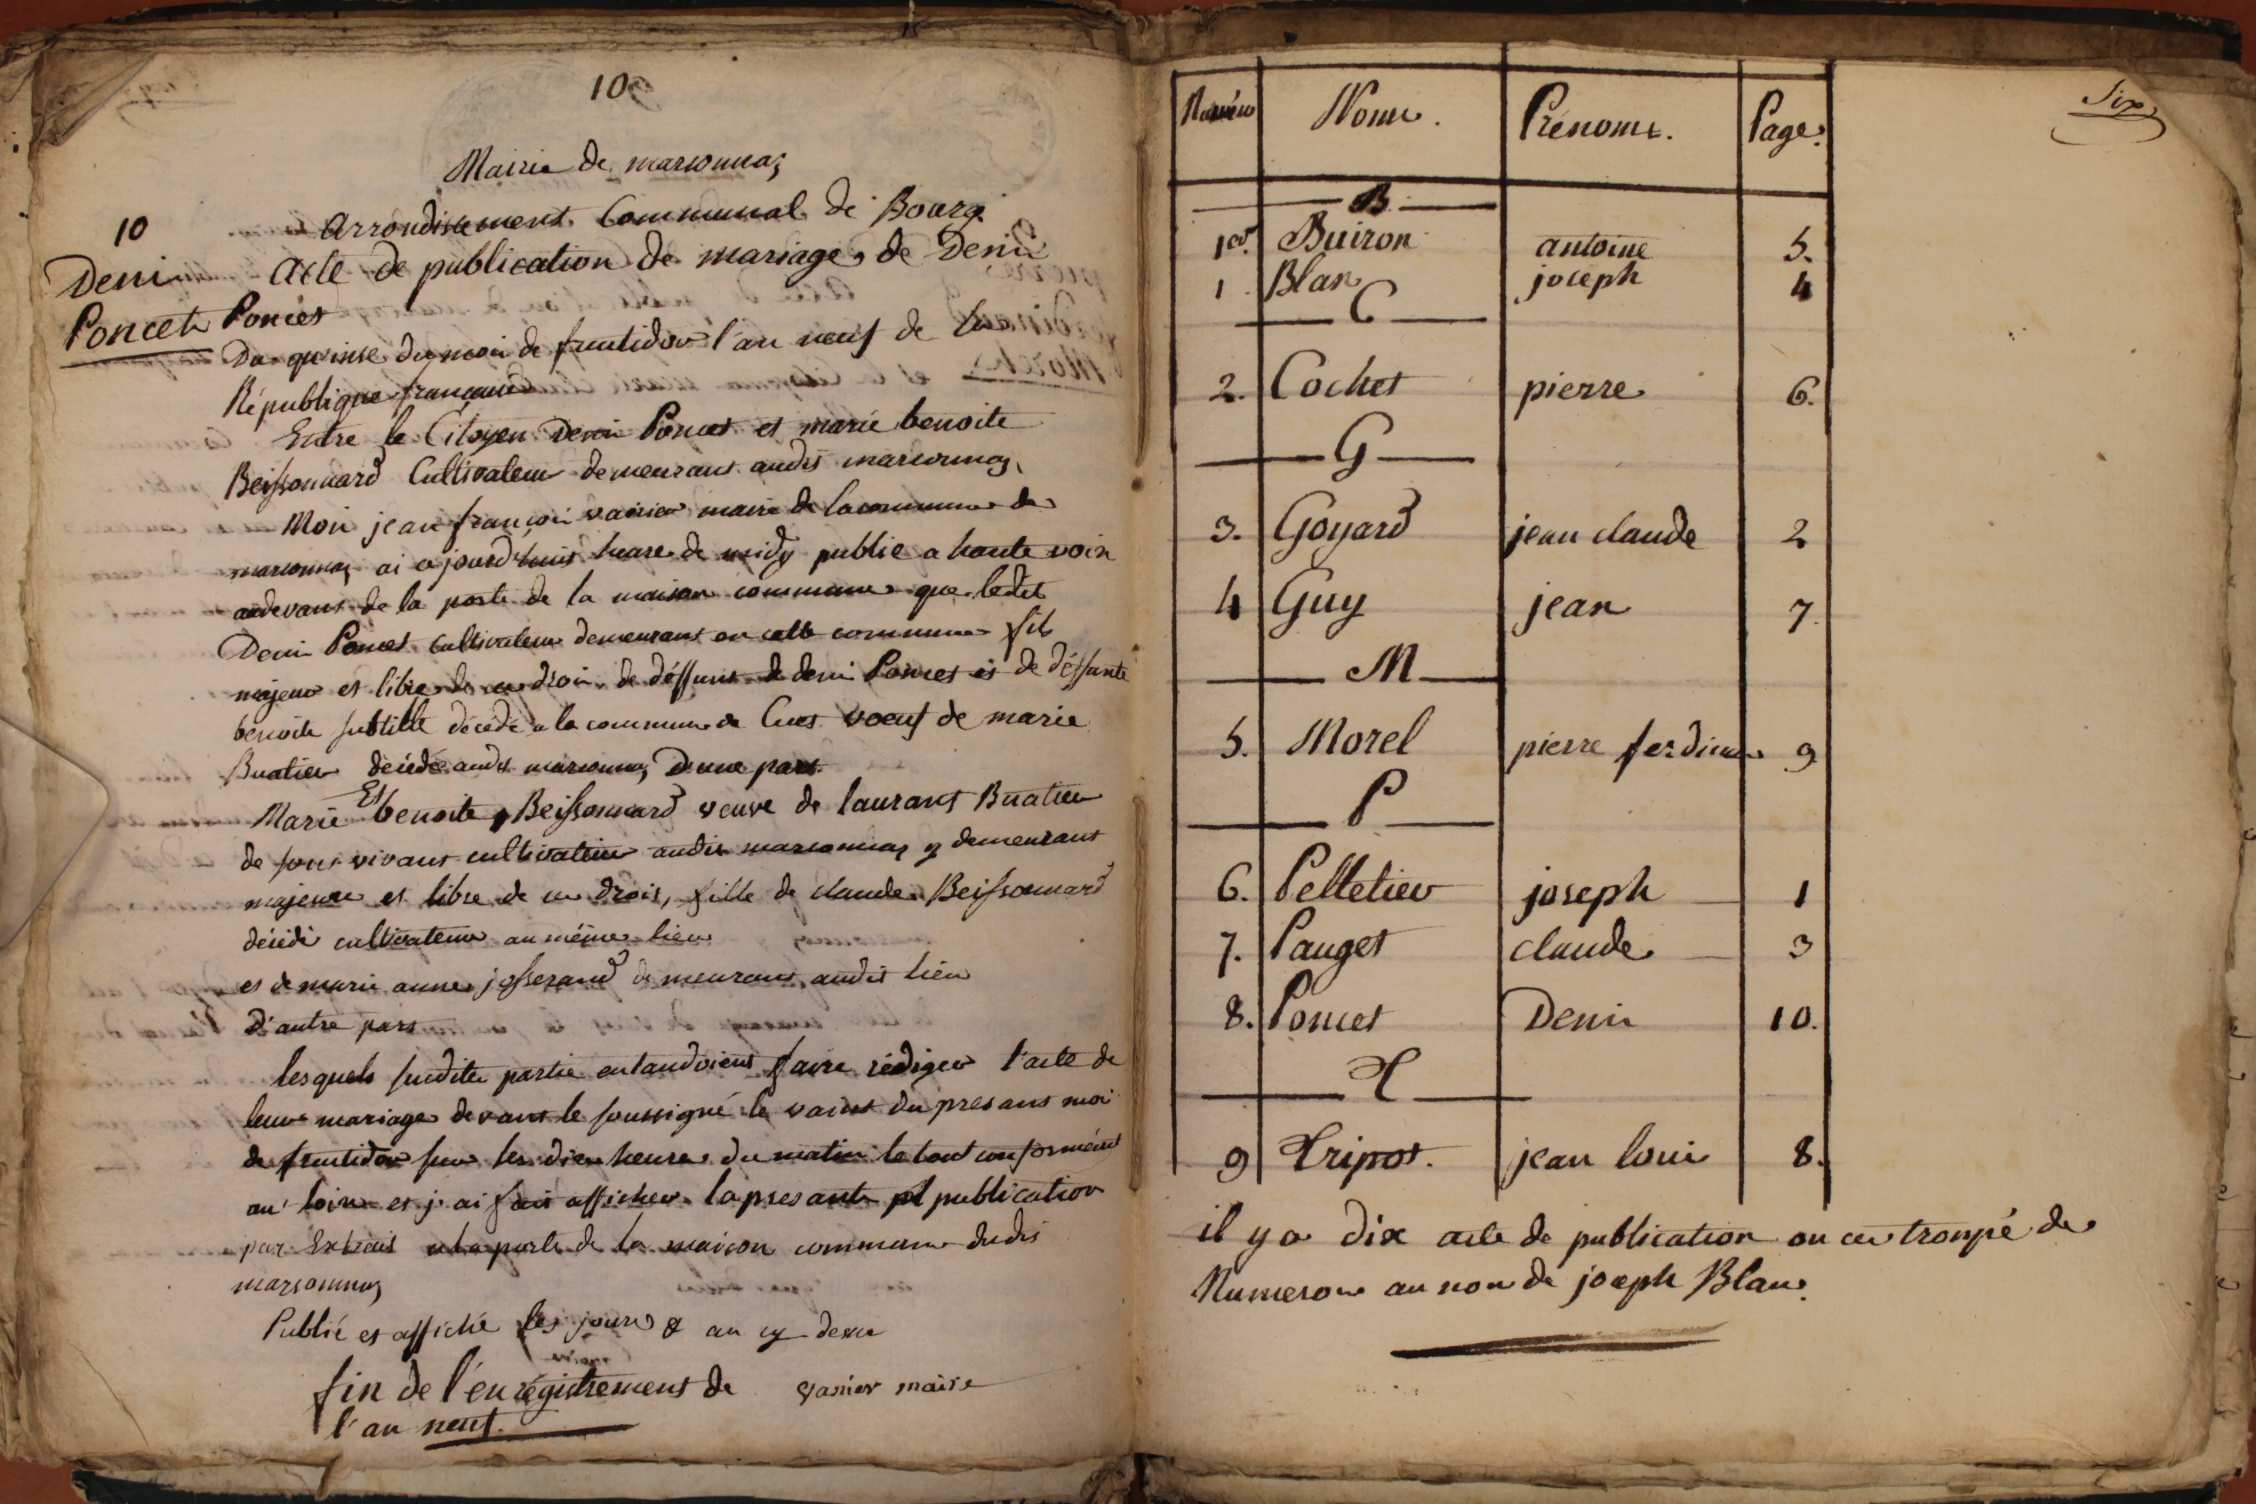 10
Mairie de marsonnas
Arrondissement Communal de Bourg
10
Acte de publication de mariage de Denis
Denis
Poncet
Poncet
Du quinse du mois de fructidor l'an neuf de la
République française
Entre le Citoyen Denis Poncet et marie benoite
Beissonnard Cultivateur demeurant audit marsonnas
Moi jean françois vairier maire de la commune de
marsonnas ai ajourd'huis heure de midy publié a haute voix
audevant de la porte de la maison commune que ledit
Denis Poncet cultivateur demeurant en cette commune fils
majeur et libre de ces drois de déffunt de denis Poncet et de déffunte
benoite subtille décédé a la commune de Cuet voeuf de marie
Buatier décédée audit marsonnas D'une part
Et
Marie benoite Beissonnard veuve de laurant Buatier
de sont vivant cultivateur audit marsonnas y demeurant
majeure et libre de ces drois, fille de claude Beissonnard
décédé cultivateur au même lieu
et de marie anne josserand demeurant audit lieu
D'autre part
lesquels sudites partie entandoient faire rédiger l'acte de
leur mariage devant le soussigné le vaint du presant mois
de fructidor sur les dix heures du matin le tout conformément
au loix et j'ai fait afficher la presante pl publication
par Extrait a la porte de la maison commune dudit
marsonnas
Publié et affiché les jours & an cy desu
fin de l'enregistrement de vanier maire
l'an neuf.
Six
Numéro Noms. Prénoms. Page.
B
1er. Buiron antoine 5.
1 Blanc joseph 4
C
2. Cochet pierre 6.
G
3. Goyard jean claude 2
4 Guy jean 7.
M
5. Morel pierre ferdinan 9
P
6. Pelletier joseph 1
7. Pauget claude 3
8. Poncet Denis 10.
T
9 Tripot. jean louis 8.
il y a dix acte de publication on ces trompé de
Numeros au nom de joseph Blanc.